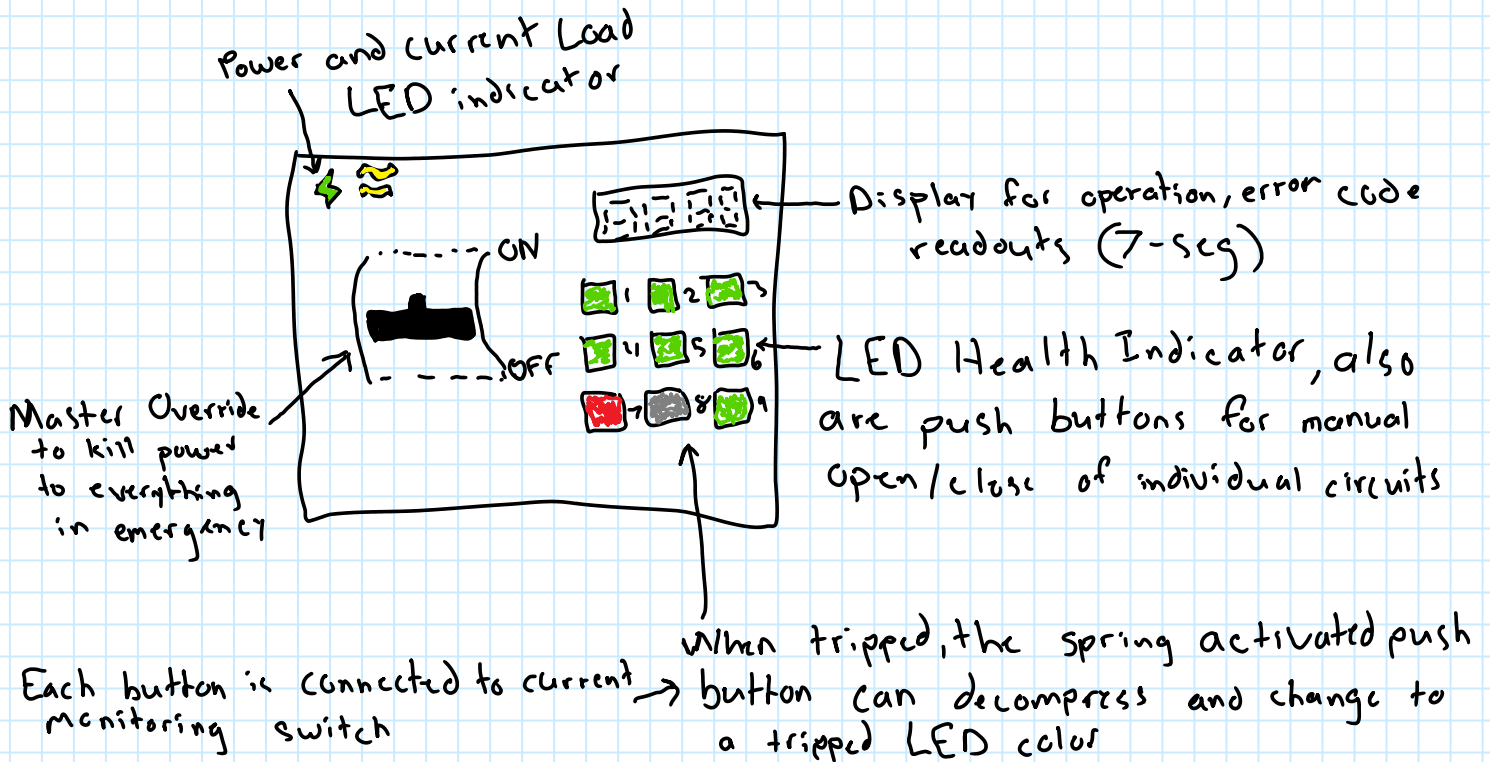 Power and current Load
LED indicator
ON
OFF
Display for operation, error code
readouts (7-seg)
1 2 3
4 5 6
7 8 9
LED Health Indicator, also
are push buttons for manual
open/close of individual circuits
Master Override
to kill power
to everything
in emergency
When tripped, the spring activated push
button can decompress and change to
a tripped LED color
Each button is connected to current
monitoring switch